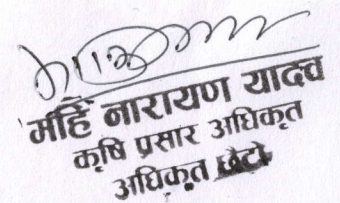 महि नारायण यादव
कृषि प्रसार अधिकृत
अधिकृत छैटौ